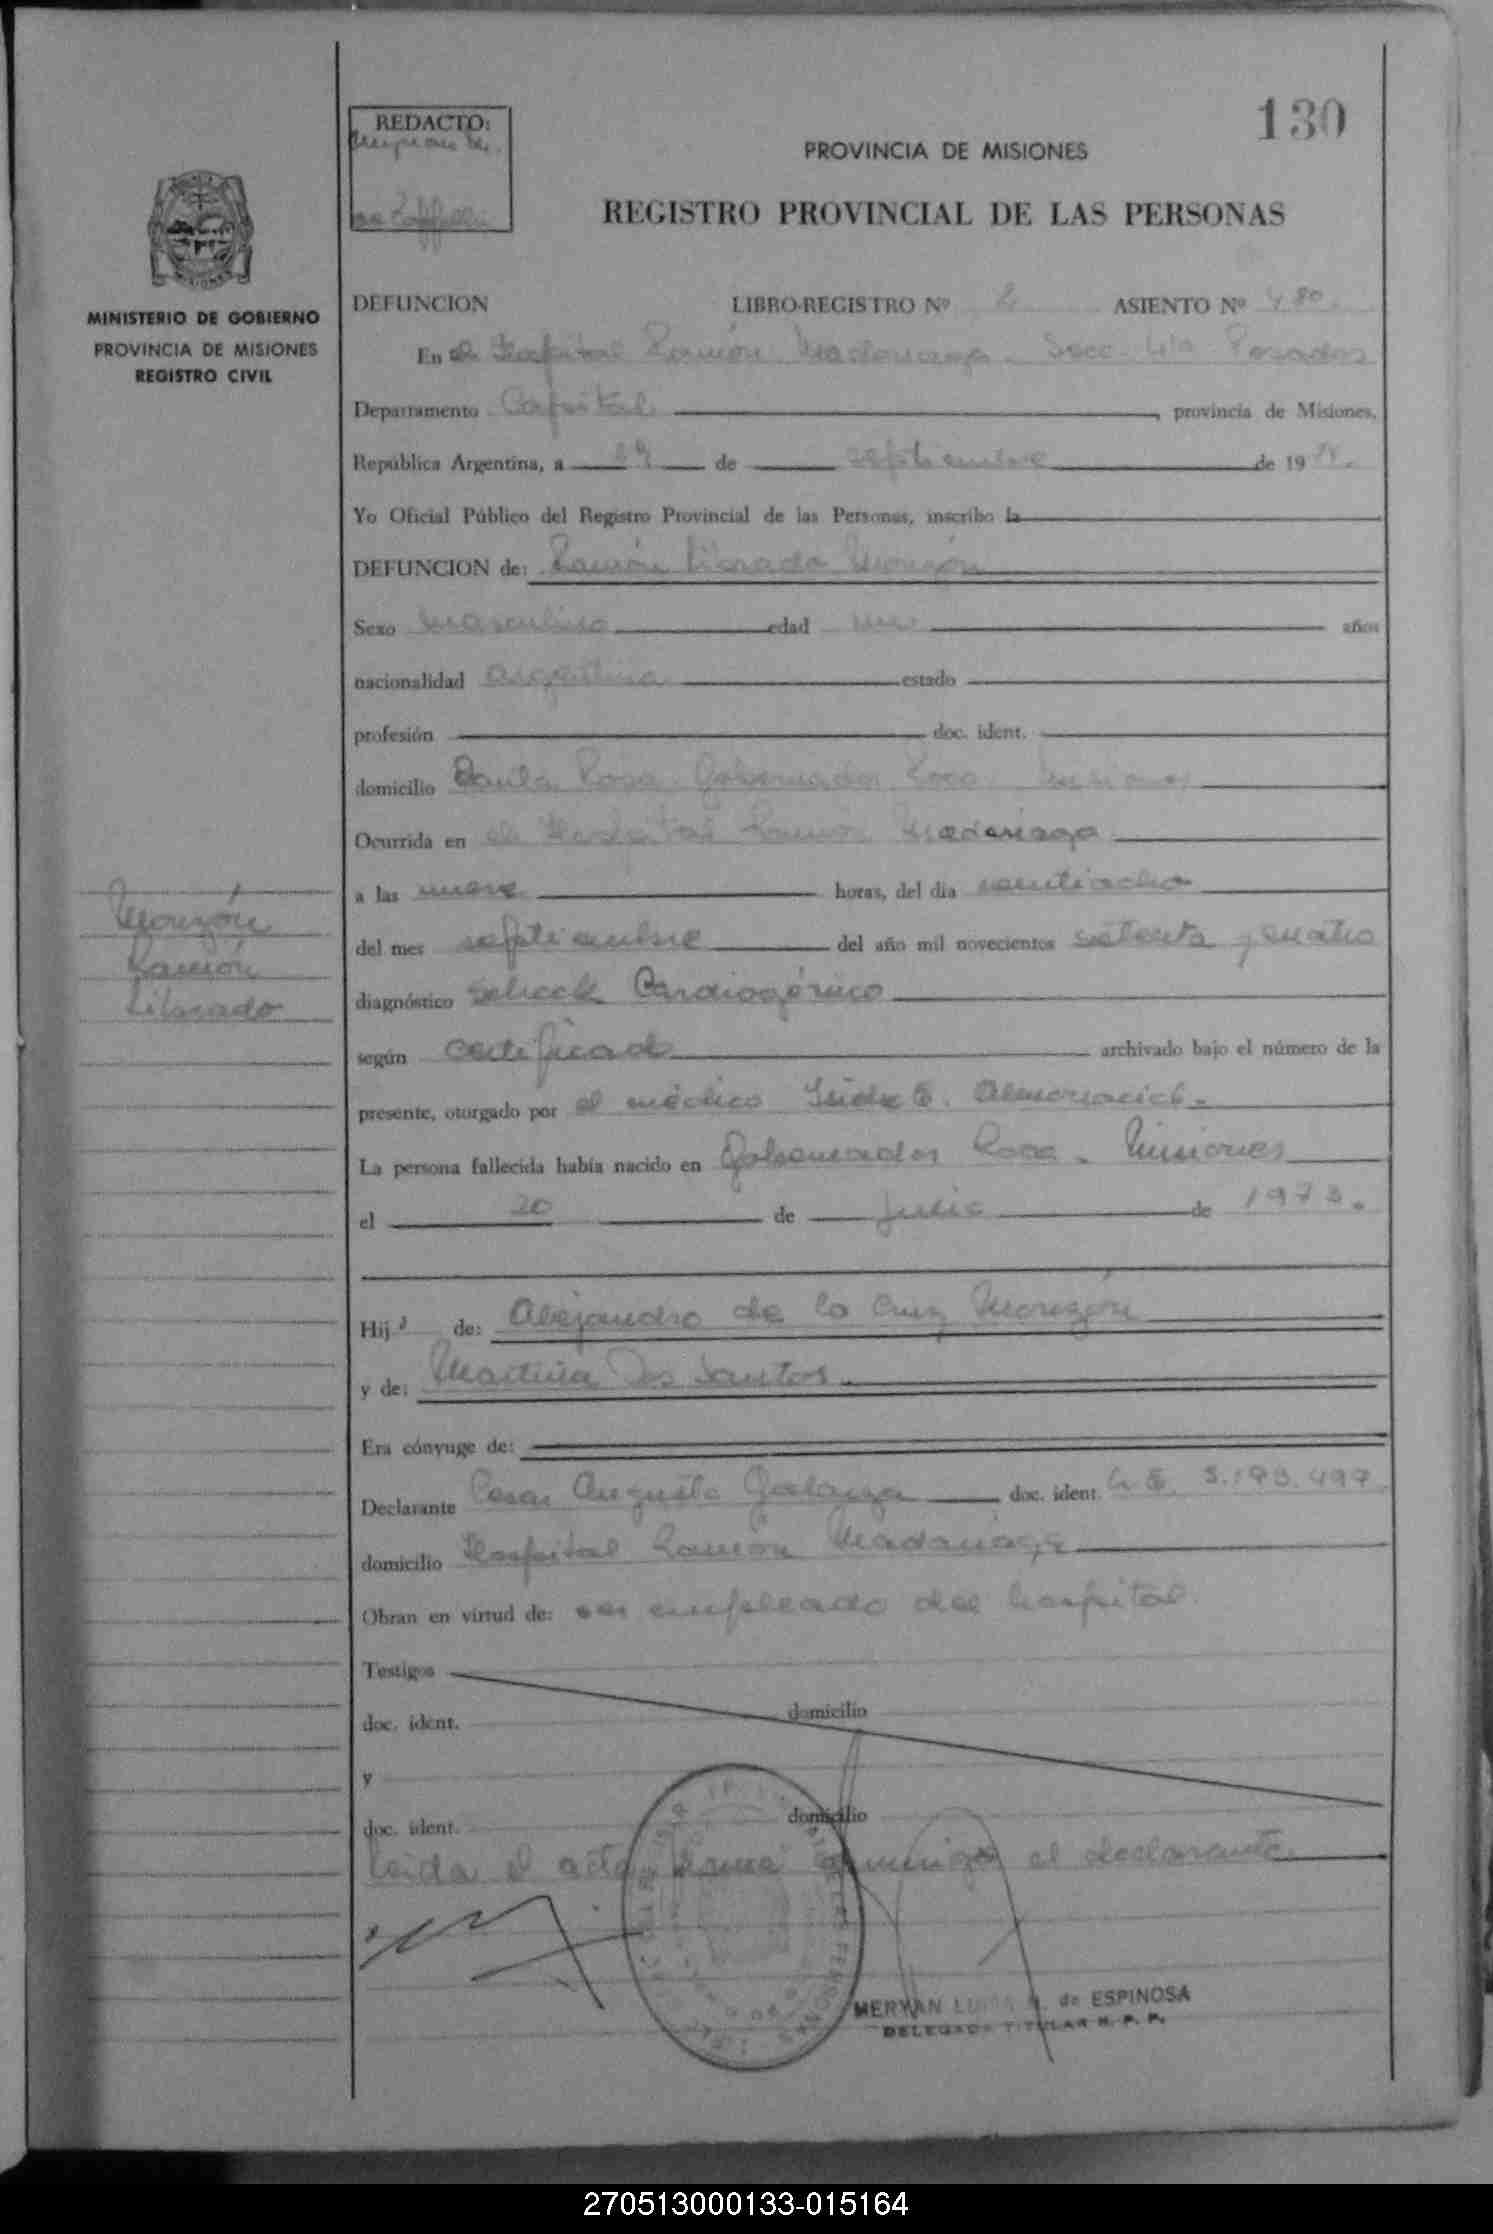 130
REDACTO:
PROVINCIA DE MISIONES
REGISTRO PROVINCIAL DE LAS PERSONAS
MINISTERIO DE GOBIERNO
PROVINCIA DE MISIONES
REGISTRO CIVIL
DEFUNCION LIBRO-REGISTRO Nº 2 ASIENTO Nº 480.
En el Hospital Ramón Madariaga - Secc. 4ta Posadas
Departamento Capital, provincia de Misiones,
República Argentina, a 29 de septiembre de 1974.
Yo Oficial Público del Registro Provincial de las Personas, inscribo la
DEFUNCION de: Ramón Librado Monzón
Sexo masculino edad un años
nacionalidad argentina estado
profesión doc. ident.
domicilio Santa Rosa Gobernador Roca. Misiones
Ocurrida en el Hospital Ramón Madariaga
a las nueve horas, del día veintiocho
del mes septiembre del año mil novecientos setenta y cuatro
diagnóstico Schock Cardiogénico
según certificado archivado bajo el número de la
presente, otorgado por el médico E. Almonacid.
La persona fallecida había nacido en Gobernador Roca - Misiones
el 20 de julio de 1973.
Monzón
Ramón
Librado
Hijo de: Alejandro de la Cruz Monzón
y de: Martina Dos Santos
Era cónyuge de:
Declarante Cesar Augusto Galarza doc. ident. L.E. 5.193.497
domicilio Hospital Ramón Madariaga
Obran en virtud de: ser empleado del hospital.
Testigos
doc. ident. domicilio
y
doc. ident. domicilio
Leida el acta firma conmigo el declarante
MERYAN LUISA de ESPINOSA
DELEGADA TITULAR R. P. P.
270513000133-015164